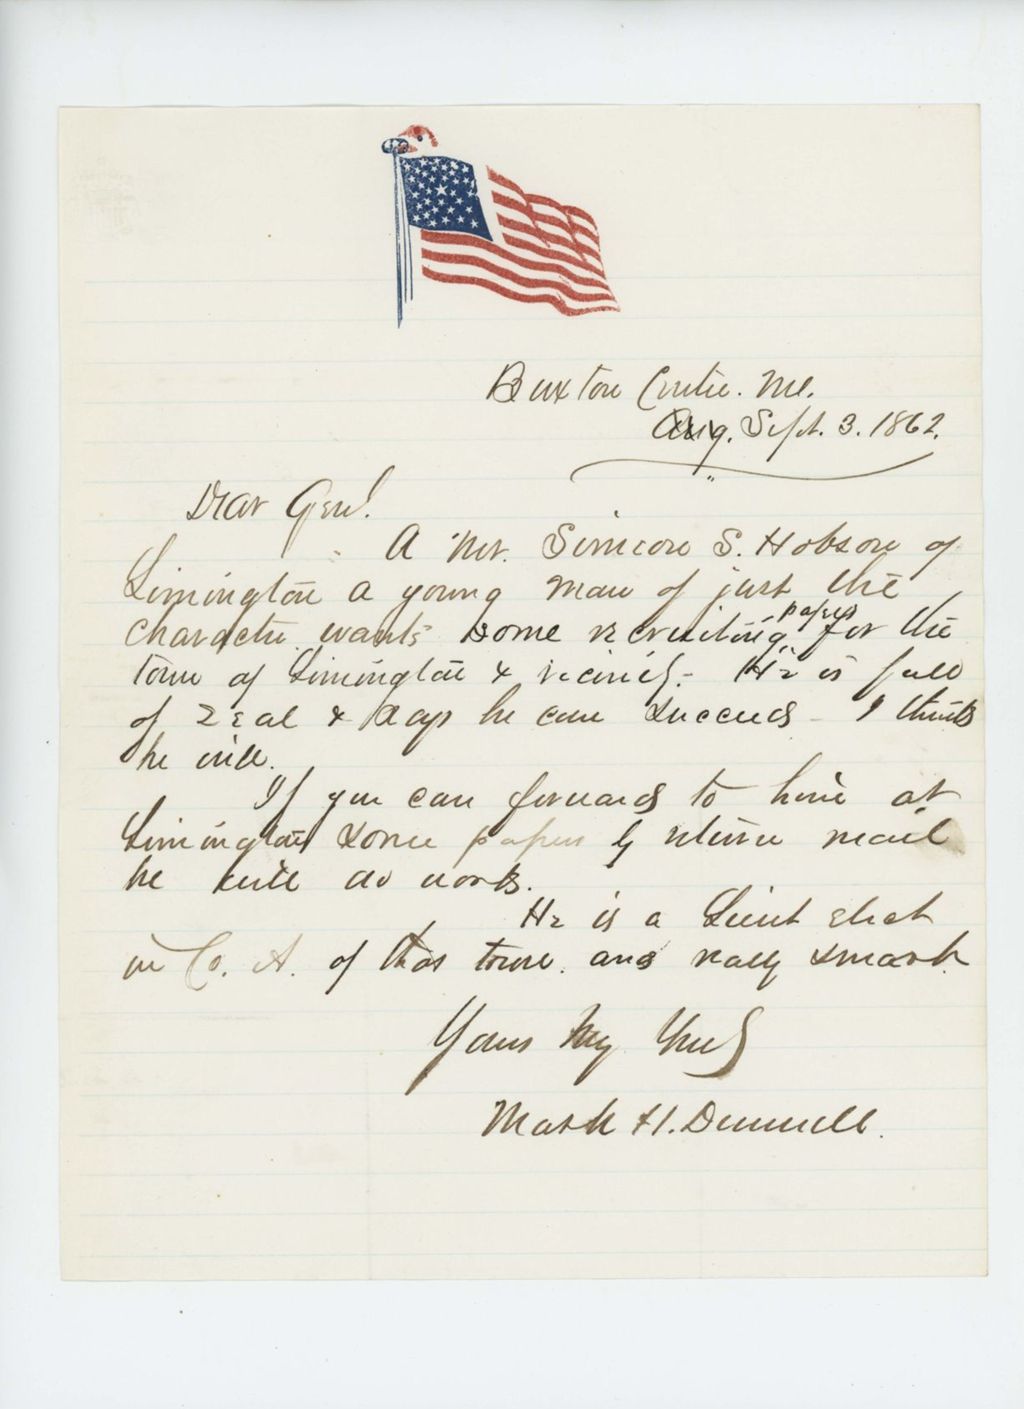 Buxton Centre. Me.
Aug. Sept. 3. 1862.
Dear Genl.
A Mr. Simeon S. Hobson of
Limington a young man of just the
character wants some recruiting papers for the
town of Limington & vicinity. He is full
of zeal & says he can succeed - I think
he will.
If you can forward to him at
Limington some papers by return mail
he will do work.
He is a Lieut elect
in Co. A. of this town. and really smart
Yours My
Mark H. Dunnell.